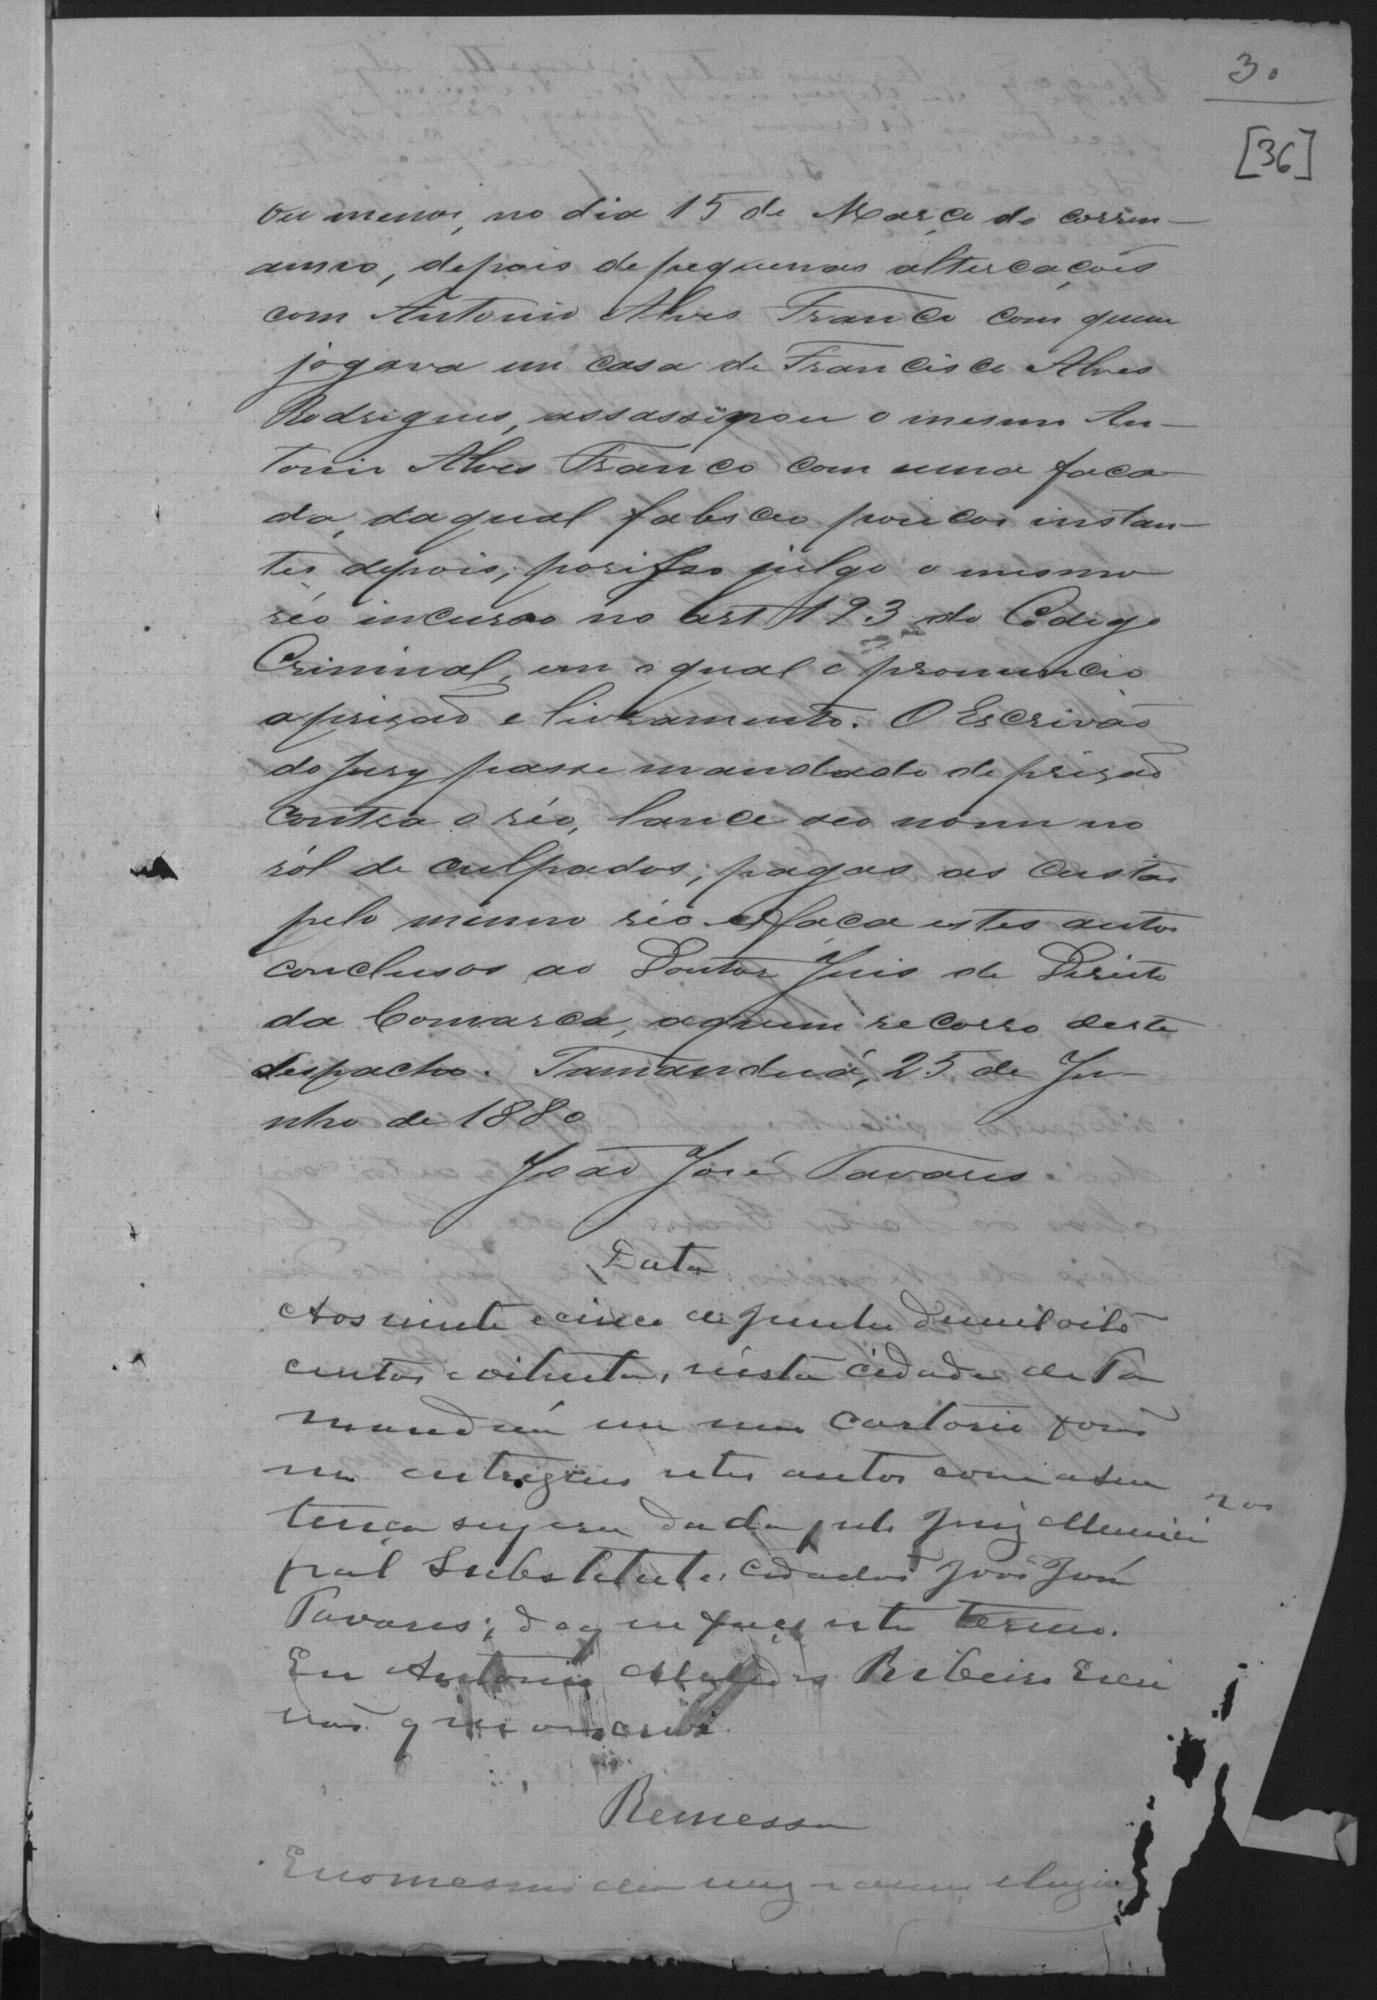 3.
[36]
ou menos, no dia 15 de Março do corren-
anno, depois de pequenas altercações
com Antonio Alves Franco com quem
jogava em casa de Francisco Alves
Rodrigues, assassinou o mesmo An-
tonio Alves Franco com uma faca-
da, da qual falesceo poucos instan-
tes depois; por isso julgo o mesmo
réo incurso no art 193 do Codigo
Criminal, em o qual o pronuncio
a prizaõ e livramento. O Escrivaõ
do Jury passe mandado de prizaõ
contra o réo, lance seo nome no
ról de culpados; pagas as custas
pelo mesmo réo e faca estes autos
conclusos ao Doutor Juis de Direito
da Comarca, a quem recorro deste
despacho. Tamanduá, 25 de Ju-
nho de 1880
João José Tavares
Data
Aos vinte e cinco de Junho de mil oito
centos e oitenta, nésta cidade de Ta
manduá em meu cartorio foraõ
me entregues estes autos com a sen
tença supra dada pelo Juiz Munici
pal Substituto, cidadaõ Joaõ José
Tavares; do que faço este termo.
Eu Antonio Ribeiro Escri
vaõ que o escrevi.
Remessa
E no mesmo dia mez e anno